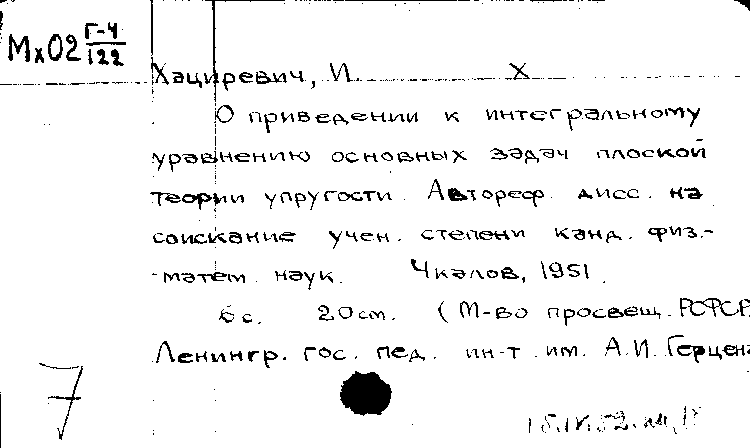 Мх02 Г-4/122
Хациревич, И. Х
О приведении к интегральному
уравнению основных задач плоской
теории упругости. Автореф. дисс. на
соискание учен. степени канд. физ.-
-матем. наук. Чкалов, 1951.
6 с. 20 см. (М-во просвещ. РСФСР.
Ленингр. гос. пед. ин-т им. А.И. Герцена
7